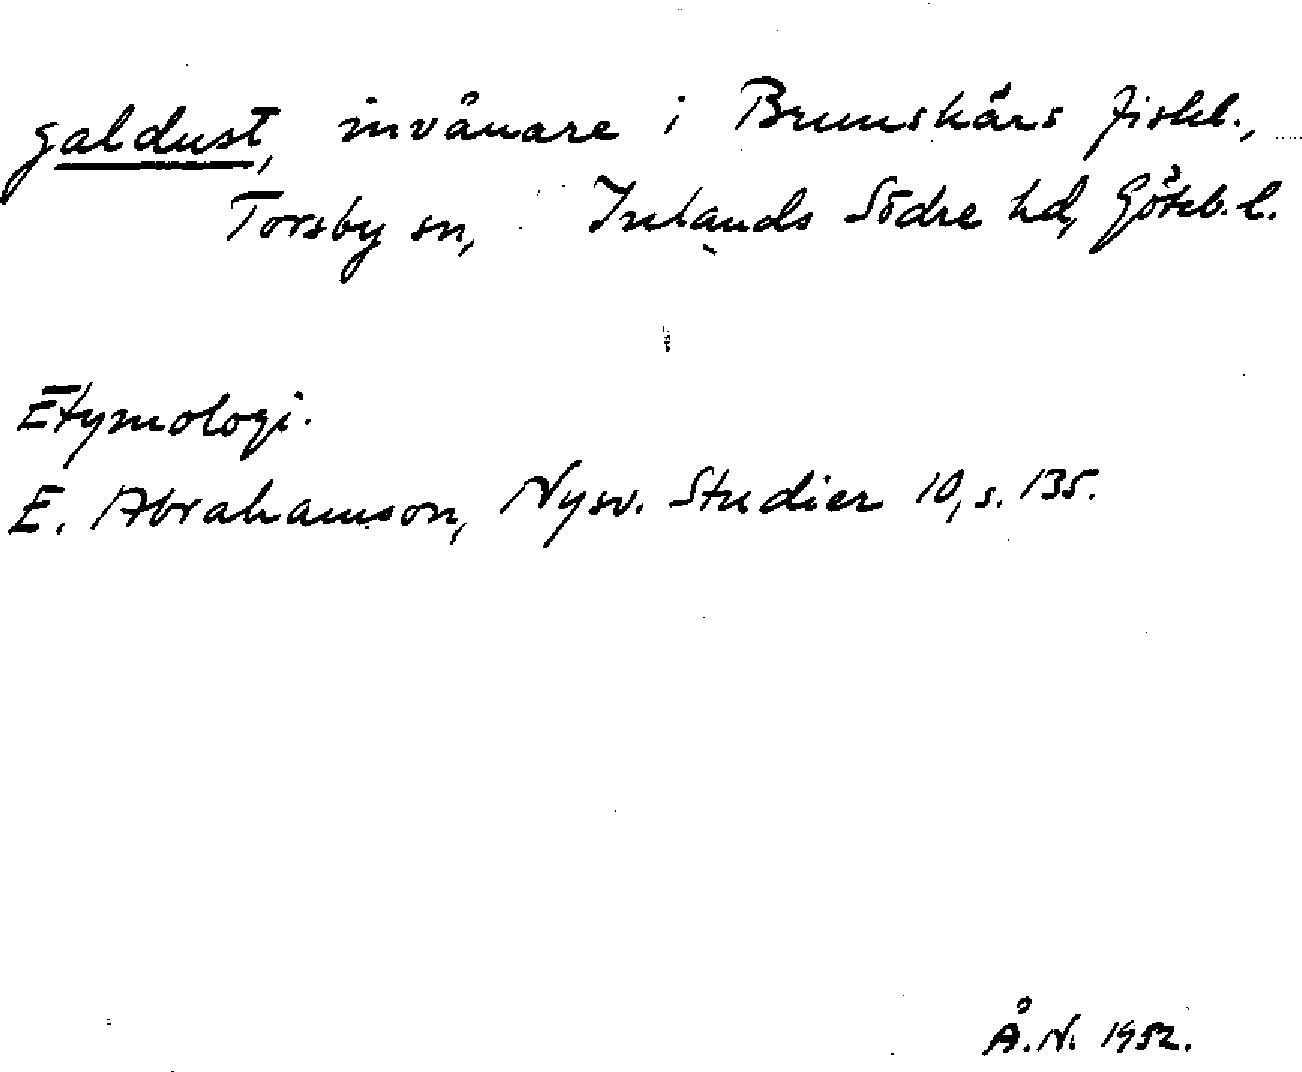 galdust, invånare i Brunskärs fiskl.,
Torsby sn, Inlands Södre hd, Göteb. l.
Etymologi.
E. Abrahamson, Nysv. Studier 10, s. 135.
Å.N. 1952.